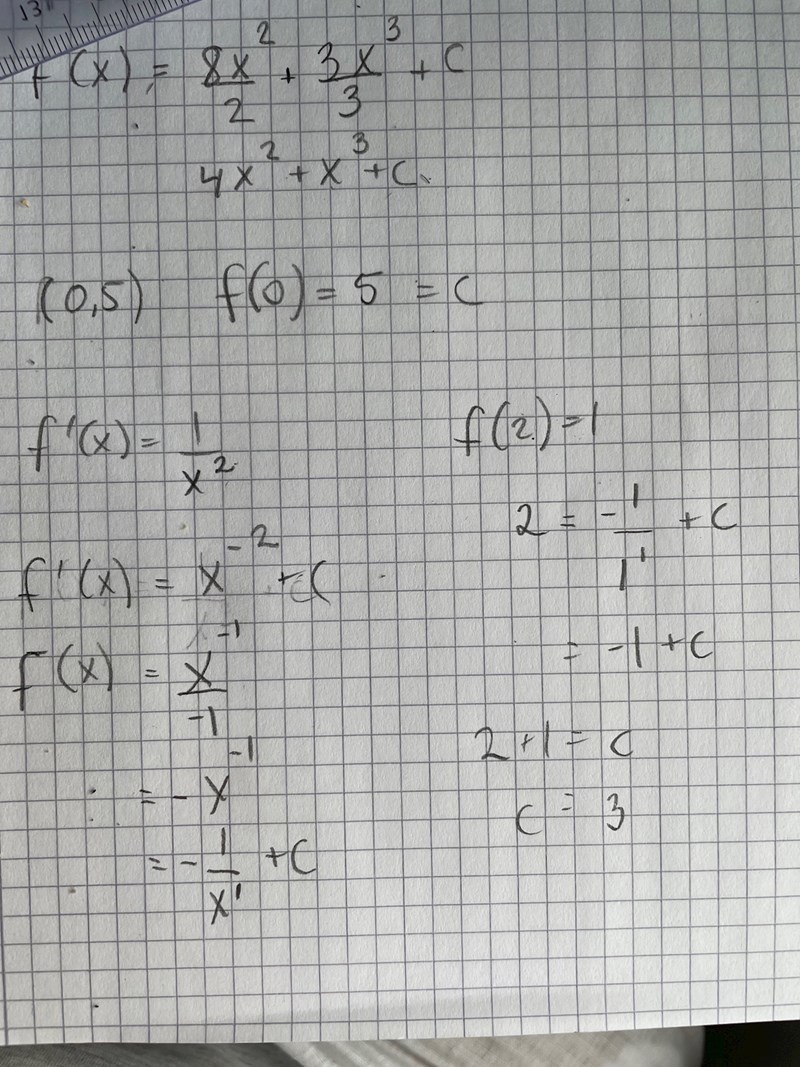 13
f(x) = 8x²/2 + 3x³/3 + C
4x² + x³ + C.
(0,5) f(0) = 5 = C
f'(x) = 1/x²
f'(x) = x⁻² + C
f(x) = x⁻¹/-1
= - x⁻¹
= - 1/x¹ + C
f(2) = 1
2 = - 1/1¹ + C
= -1 + C
2 + 1 = C
C = 3